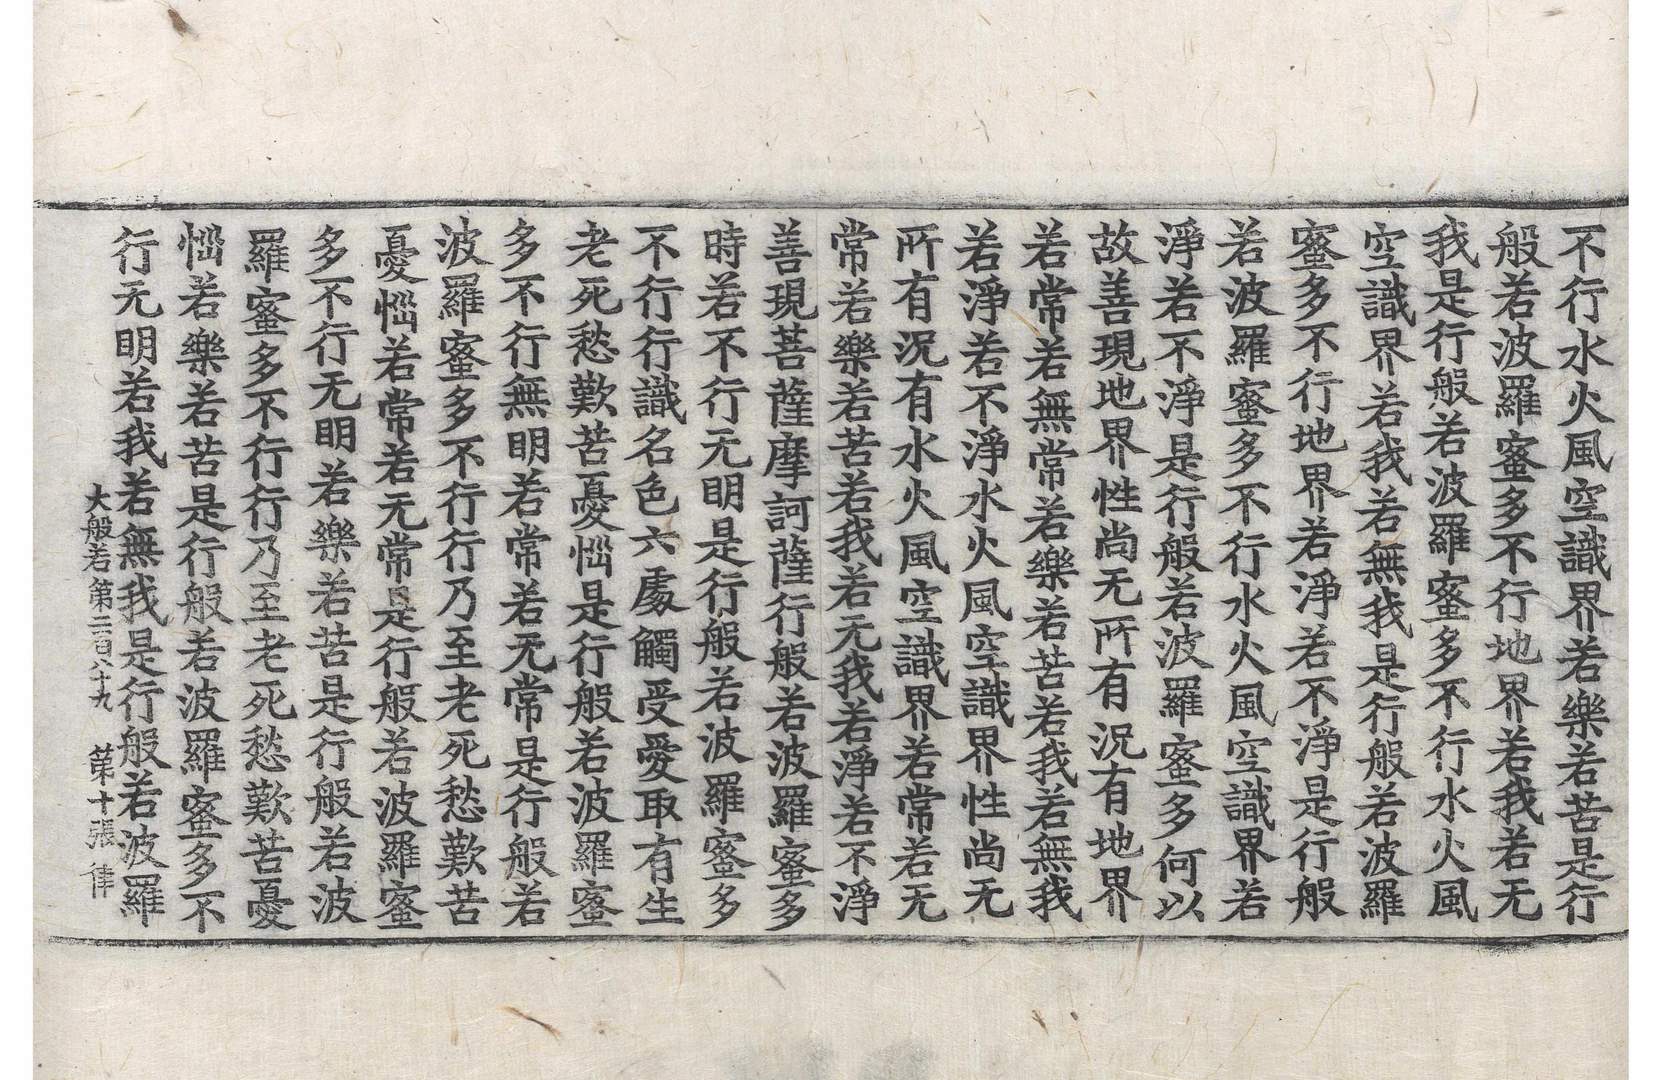 不行水火風空識界若樂若苦是行
般若波羅蜜多不行地界若我若无
我是行般若波羅蜜多不行水火風
空識界若我若無我是行般若波羅
蜜多不行地界若淨若不淨是行般
若波羅蜜多不行水火風空識界若
淨若不淨是行般若波羅蜜多何以
故善現地界性尚无所有況有地界
若常若無常若樂若苦若我若無我
若淨若不淨水火風空識界性尚无
所有況有水火風空識界若常若无
常若樂若苦若我若无我若淨若不淨
善現菩薩摩訶薩行般若波羅蜜多
時若不行无明是行般若波羅蜜多
不行行識名色六處觸受愛取有生
老死愁歎苦憂惱是行般若波羅蜜
多不行無明若常若无常是行般若
波羅蜜多不行行乃至老死愁歎苦
憂惱若常若无常是行般若波羅蜜
多不行无明若樂若苦是行般若波
羅蜜多不行行乃至老死愁歎苦憂
惱若樂若苦是行般若波羅蜜多不
行无明若我若無我是行般若波羅
大般若第二百八十九 第十張